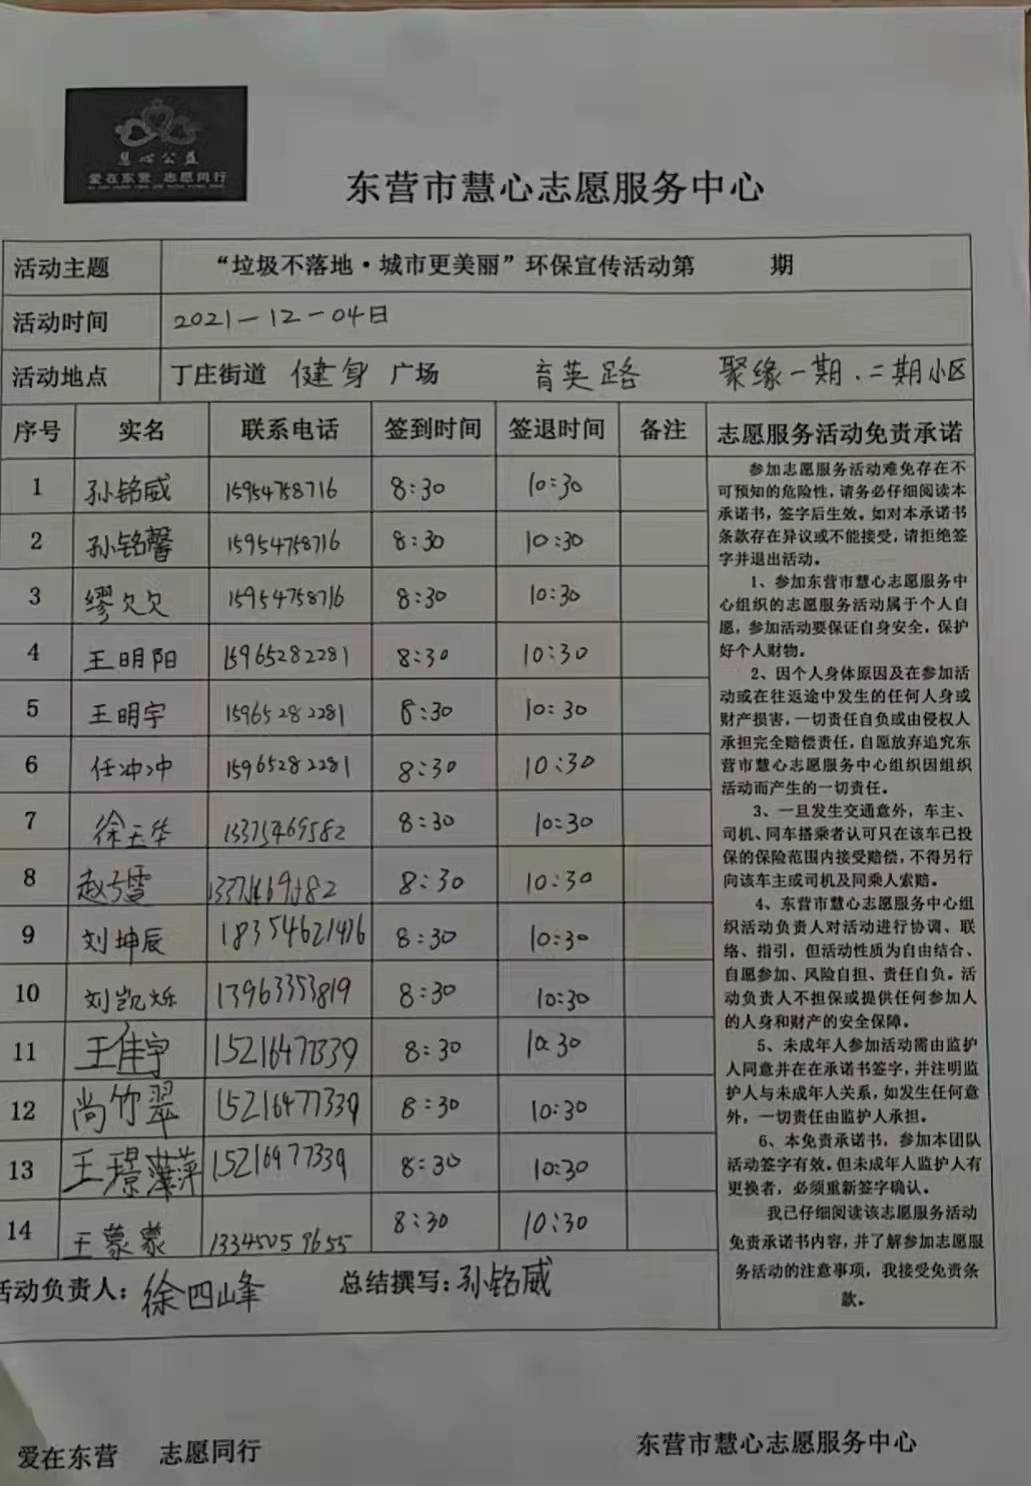 慧心公益
爱在东营 志愿同行
东营市慧心志愿服务中心
活动主题 “垃圾不落地·城市更美丽”环保宣传活动第 期
活动时间 2021-12-04日
活动地点 丁庄街道 健身 广场 育英路 聚缘一期、二期小区
序号 实名 联系电话 签到时间 签退时间 备注
1 孙铭威 15954758716 8:30 10:30
2 孙铭馨 15954758716 8:30 10:30
3 缪欠欠 15954758716 8:30 10:30
4 王明阳 15965282281 8:30 10:30
5 王明宇 15965282281 8:30 10:30
6 任冲冲 15965282281 8:30 10:30
7 徐玉华 13375469582 8:30 10:30
8 8:30 10:30
9 刘坤辰 18354621476 8:30 10:30
10 刘凯烁 13963353819 8:30 10:30
11 王佳宇 15216477339 8:30 10:30
12 尚竹翠 15216477339 8:30 10:30
13 王璟 15216477339 8:30 10:30
14 王蒙蒙 13345059655 8:30 10:30
活动负责人：徐四峰 总结撰写：孙铭威
志愿服务活动免责承诺
参加志愿服务活动难免存在不
可预知的危险性，请务必仔细阅读本
承诺书，签字后生效。如对本承诺书
条款存在异议或不能接受，请拒绝签
字并退出活动。
1、参加东营市慧心志愿服务中
心组织的志愿服务活动属于个人自
愿，参加活动要保证自身安全，保护
好个人财物。
2、因个人身体原因及在参加活
动或在往返途中发生的任何人身或
财产损害，一切责任自负或由侵权人
承担完全赔偿责任，自愿放弃追究东
营市慧心志愿服务中心组织因组织
活动而产生的一切责任。
3、一旦发生交通意外，车主、
司机、同车搭乘者认可只在该车已投
保的保险范围内接受赔偿，不得另行
向该车主或司机及同乘人索赔。
4、东营市慧心志愿服务中心组
织活动负责人对活动进行协调、联
络、指引，但活动性质为自由结合、
自愿参加、风险自担、责任自负。活
动负责人不担保或提供任何参加人
的人身和财产的安全保障。
5、未成年人参加活动需由监护
人同意并在在承诺书签字，并注明监
护人与未成年人关系，如发生任何意
外，一切责任由监护人承担。
6、本免责承诺书，参加本团队
活动签字有效。但未成年人监护人有
更换者，必须重新签字确认。
我已仔细阅读该志愿服务活动
免责承诺书内容，并了解参加志愿服
务活动的注意事项，我接受免责条
款。
爱在东营 志愿同行 东营市慧心志愿服务中心